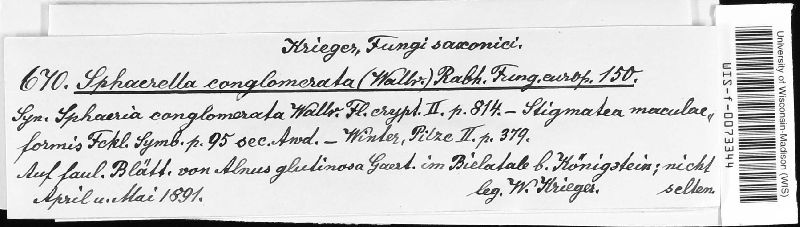 Krieger, Fungi saxonici.
670. Sphaerella conglomerata (Wallr.) Rabh. Fung. europ. 150.
Syn. Sphaeria conglomerata Wallr. Fl. crypt. II. p. 814. – Stigmatea maculae,,
formis Fckl. Symb. p. 95 sec. Awd. – Winter, Pilze II. p. 379.
Auf faul. Blätt. von Alnus glutinosa Gaert. im Bielatale b. Königstein; nicht
selten.
April u. Mai 1891. leg. W. Krieger.
University of Wisconsin-Madison (WIS)
WIS-f-0073344